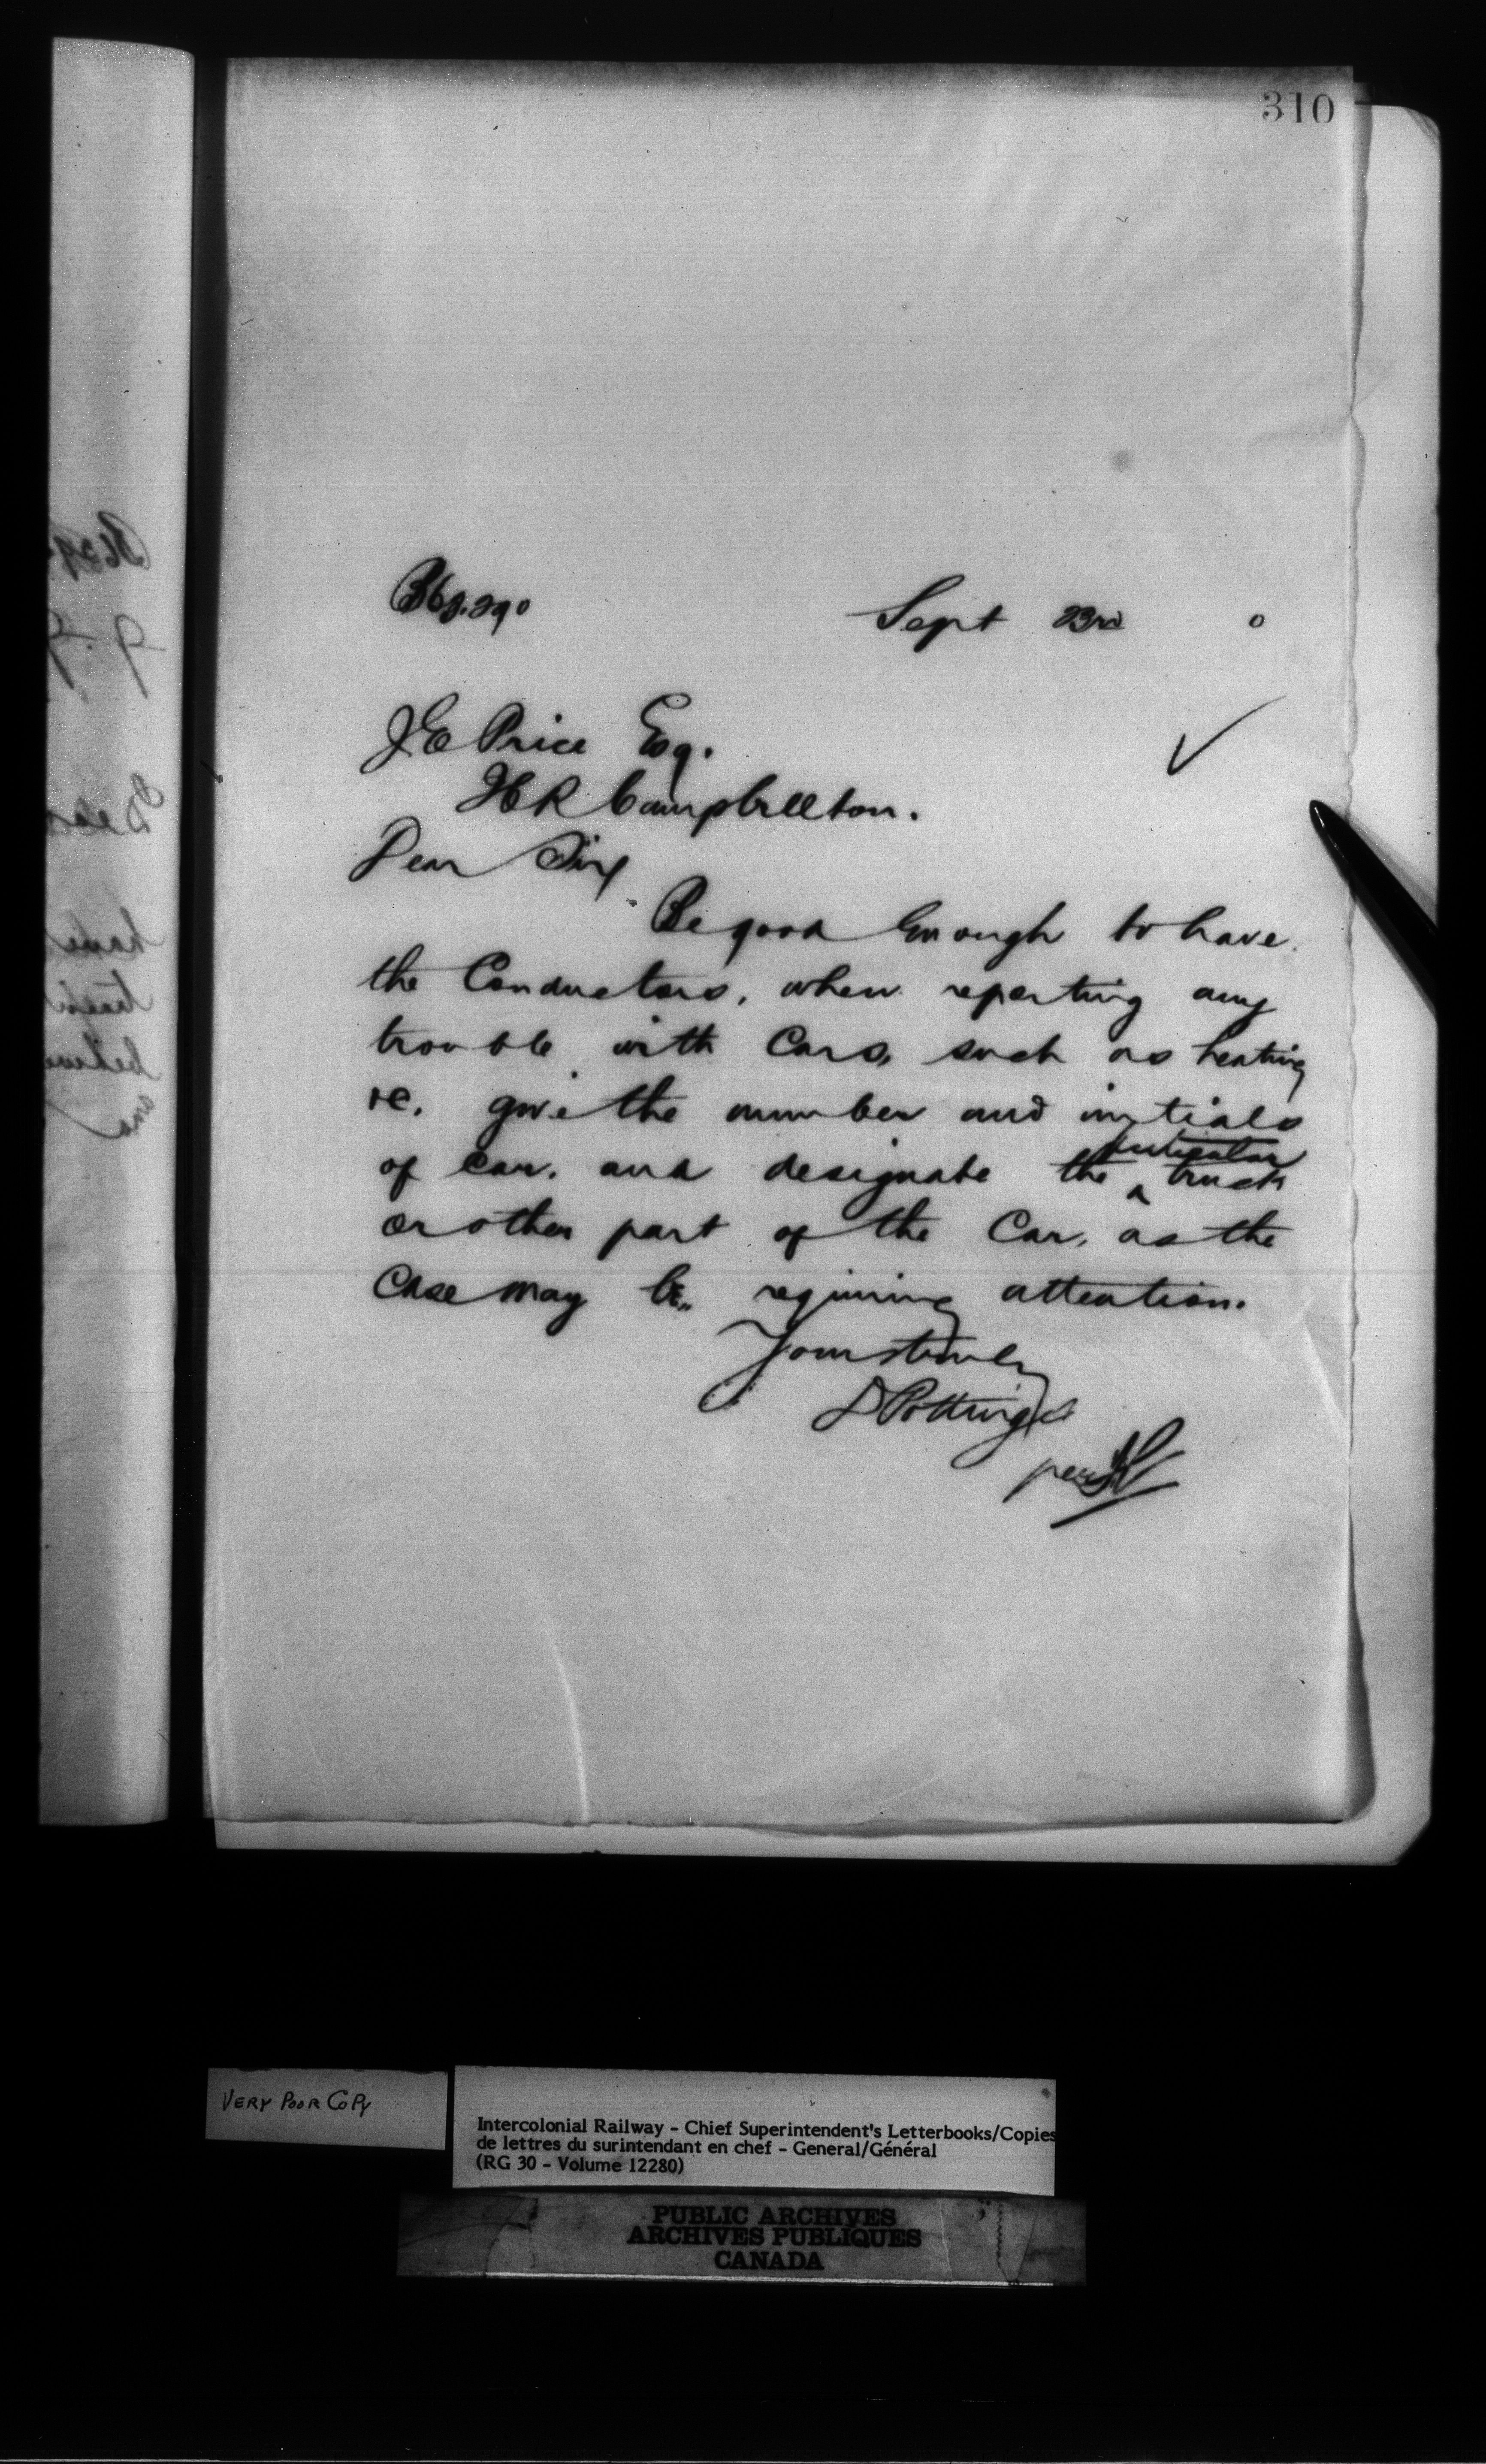 310
Sept 23rd 0
J E Price Esq.
Campbellton.
Dear Sir
Be good Enough to have
the Conductors, when reporting any
trouble with Cars, such as heating
&c. give the number and initials
of Car, and designate the particular truck
or other part of the Car, as the
Case may be, requiring attention.
Yours truly
D Pottinger
per
VERY POOR COPY
Intercolonial Railway - Chief Superintendent's Letterbooks/Copies
de lettres du surintendant en chef - General/Général
(RG 30 - Volume 12280)
PUBLIC ARCHIVES
ARCHIVES PUBLIQUES
CANADA